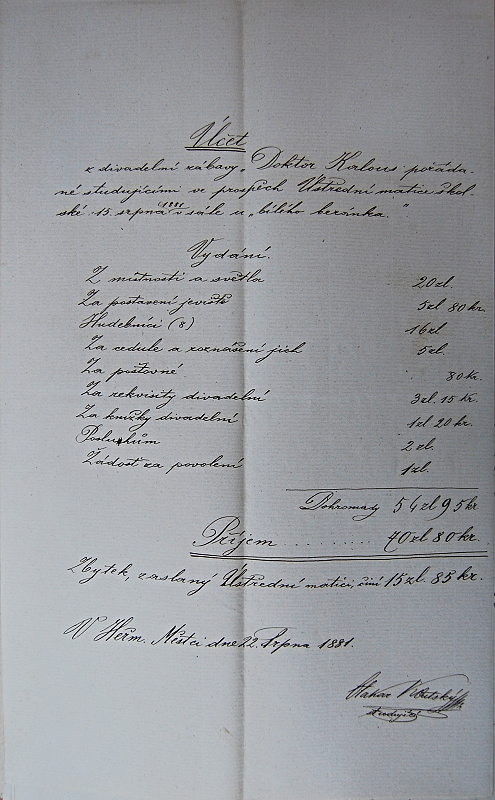 Účet
z divadelní zábavy „Doktor Kalous" pořáda-
né studujícími ve prospěch Ústřední matice škol-
ské 15. srpna 1881 v sále u „bílého beránka."
Vydání.
Z místnosti a světla 20 zl.
Za postavení jeviště 5 zl 80 kr.
Hudebníci (8) 16 zl
Za cedule a roznášení jich 5 zl.
Za poštovné 80 kr.
Za rekvisity divadelní 3 zl. 15 kr.
Za knížky divadelní 1 zl 20 kr.
Posluhům 2 zl.
Žádost za povolení 1 zl.
Dohromady 54 zl 95 kr
Příjem . . . . . . . . . . 70 zl 80 kr.
Zbytek, zaslaný Ústřední matici, činí 15 zl. 85 kr.
V Heřm. Městci dne 22. srpna 1881.
Otakar